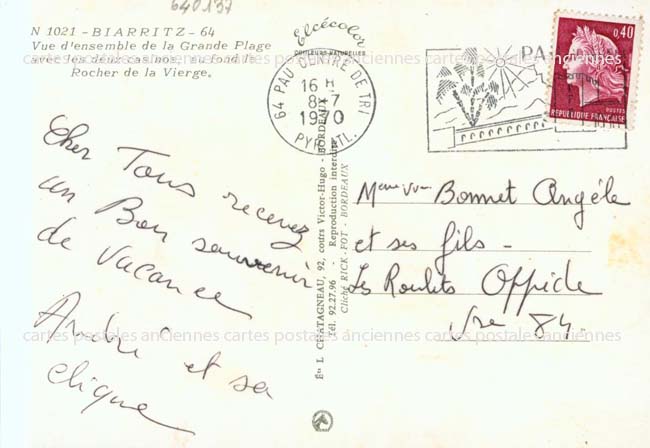 640137
N 1021 - BIARRITZ - 64
Vue d'ensemble de la Grande Plage
avec les deux casinos, au fond le
Rocher de la Vierge.
Elcécolor
COULEURS NATURELLES
64 PAU CENTRE DE TRI
16 H
8-7
1970
PYR-ATL.
PAU
0,40
POSTES
REPUBLIQUE FRANÇAISE
cartes postales anciennes cartes postales anciennes cartes postales anciennes
Cher Tous recevez
un Bon souvenir
de Vacance
André et sa
clique
Ets L. CHATAGNEAU, 92, cours Victor-Hugo - BORDEAUX
Tél. 92.27.96 - Reproduction interdite
Cliché RICK-FOT - BORDEAUX
Bonnet Angèle
et ses fils -
Les Roulets Oppède
Vse 84.
cartes postales anciennes cartes postales anciennes cartes postales anciennes